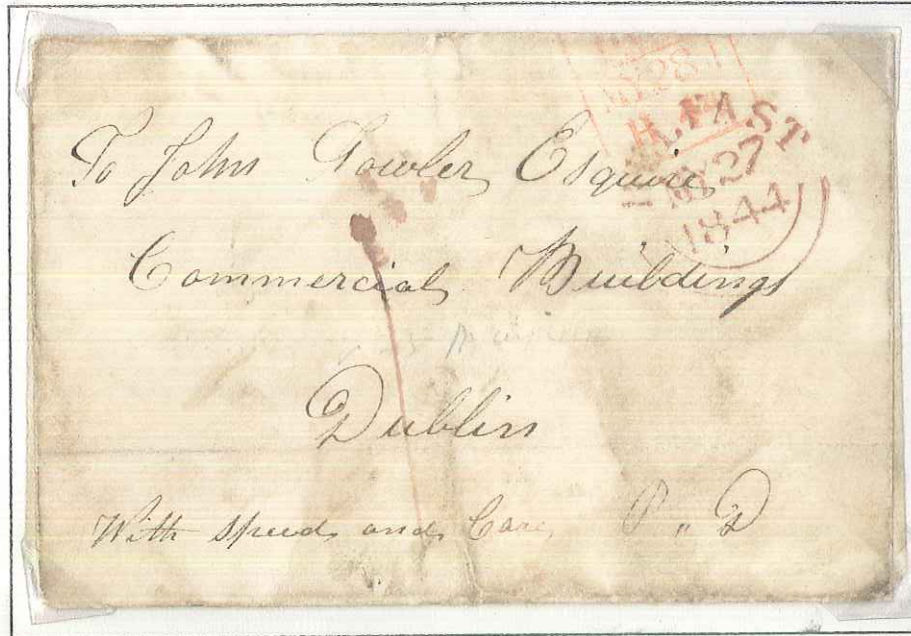 MY 28
BELFAST
MY 27
1844
To John Fowler Esquire
Commercial Buildings
Dublin
With speed and Care, P " D